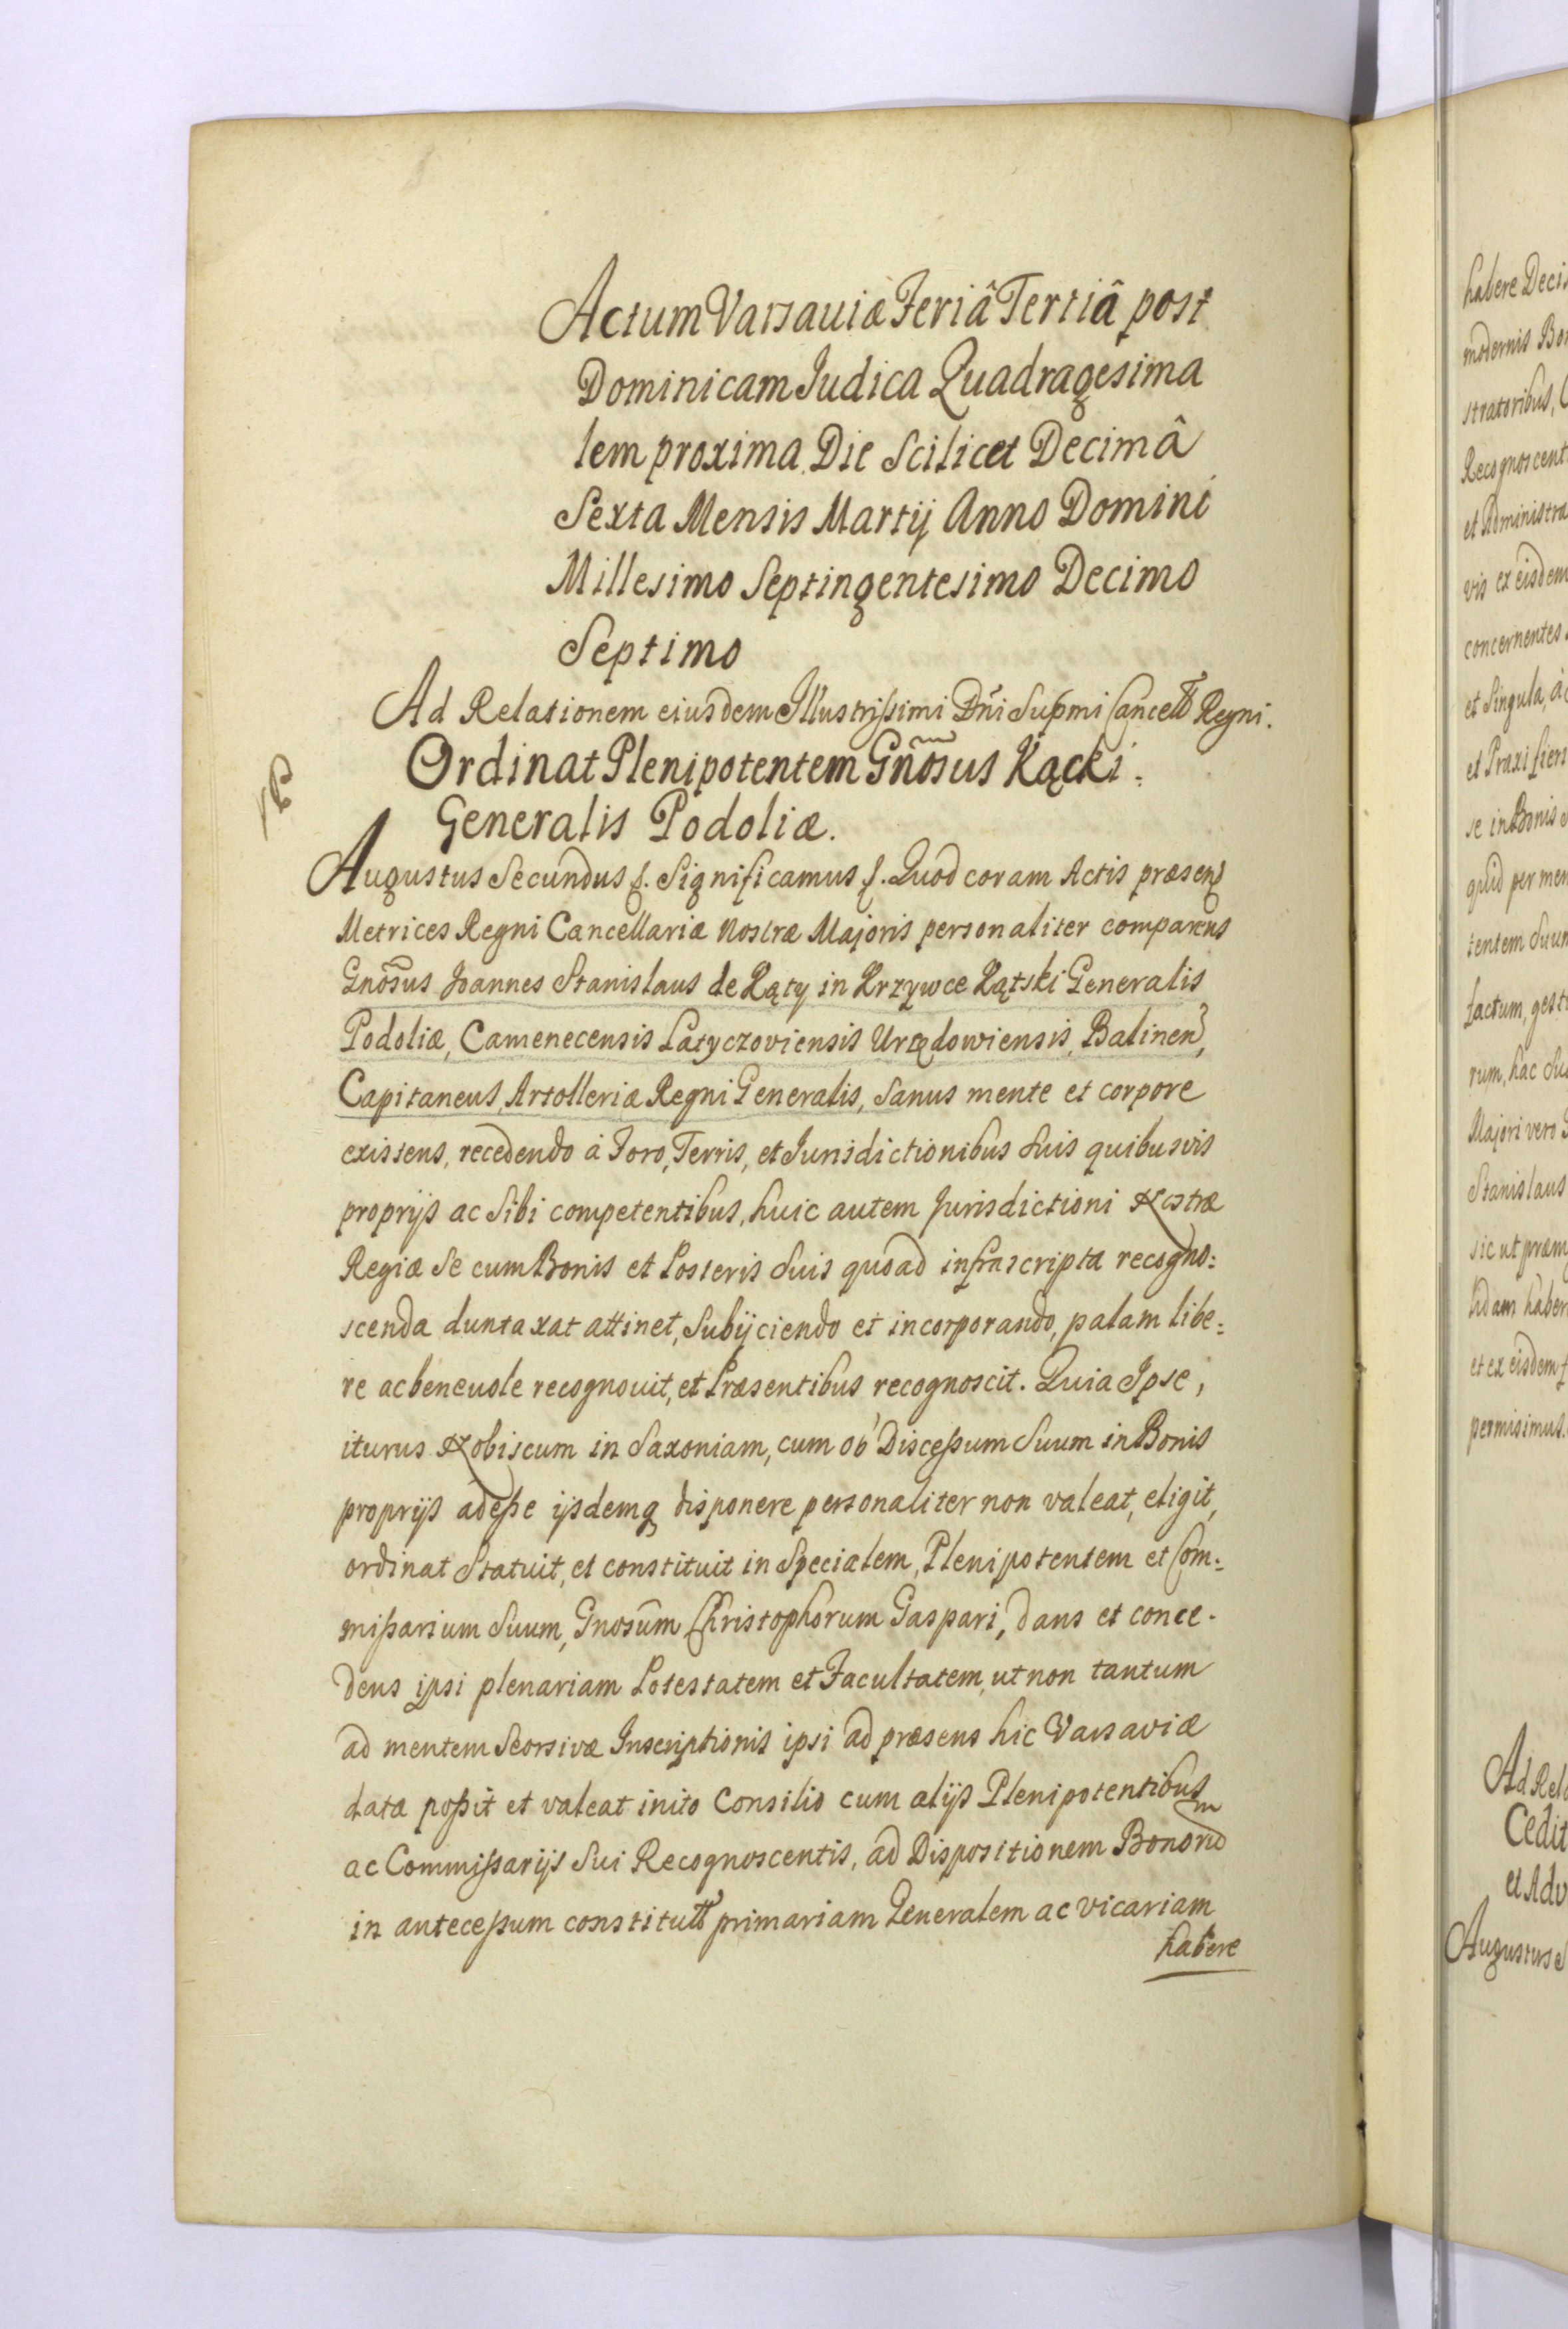 Actum Varsauiæ Feriâ Tertiâ post
Dominicam Judica Quadragesima
lem proxima Die Scilicet Decimâ
Sexta Mensis Martij Anno Domini
Millesimo Septingentesimo Decimo
Septimo
Ad Relationem eiusdem Illustrissimi Dñi Supmi Cancell Regni.
Ordinat Plenipotentem Gñosus Kącki.
Generalis Podoliæ.
Augustus Secundus f. Significamus f. Quod coram Actis præsens
Metrices Regni Cancellariæ Nostræ Majoris personaliter comparens
Gnõsus Joannes Stanislaus de Kąty in Krzywce Kątski Generalis
Podoliæ, Camenecensis Latyczoviensis Urzędowiensis, Balinen,
Capitaneus, Artolleriæ Regni Generalis, Sanus mente et corpore
existens, recedendo à Foro, Terris, et Jurisdictionibus Suis quibusvis
proprijs ac Sibi competentibus, huic autem Jurisdictioni Nostræ
Regiæ Se cum Bonis et Posteris Suis quoad infrascripta recogno:
scenda duntaxat attinet, Subijciendo et incorporando, palam libe:
re ac beneuole recognouit, et Præsentibus recognoscit. Quia Ipse,
iturus Nobiscum in Saxoniam, cum ob Discessum Suum in Bonis
proprijs adesse ijsdemq disponere personaliter non valeat, eligit,
ordinat Statuit, et constituit in Specialem, Plenipotentem et Com:
missarium Suum, Gnosũm Christophorum Gaspari, dans et conce-
dens ipsi plenariam Potestatem et Facultatem, ut non tantum
ad mentem Seorsivæ Inscriptionis ipsi ad præsens hic Varsaviæ
datæ possit et valeat inito Consilio cum alijs Plenipotentibus
ac Commissarijs Sui Recognoscentis, ad Dispositionem Bonorũ
in antecessum constitutt primariam Generalem ac vicariam
habere
habere Deci
modernis Bo
stratoribus,
Recognoscent
et Administra
vis ex eisdem
concernentes
et Singula, a
et Praxi fiers
se in Bonis
quid per men
tentem Suum
factum, gest
rum, hac
Majori vero
Stanislaus
sic ut præm
haber
et ex eisdem
permisimus.
Ad Rel
Cedit
et Adv
Augustus S